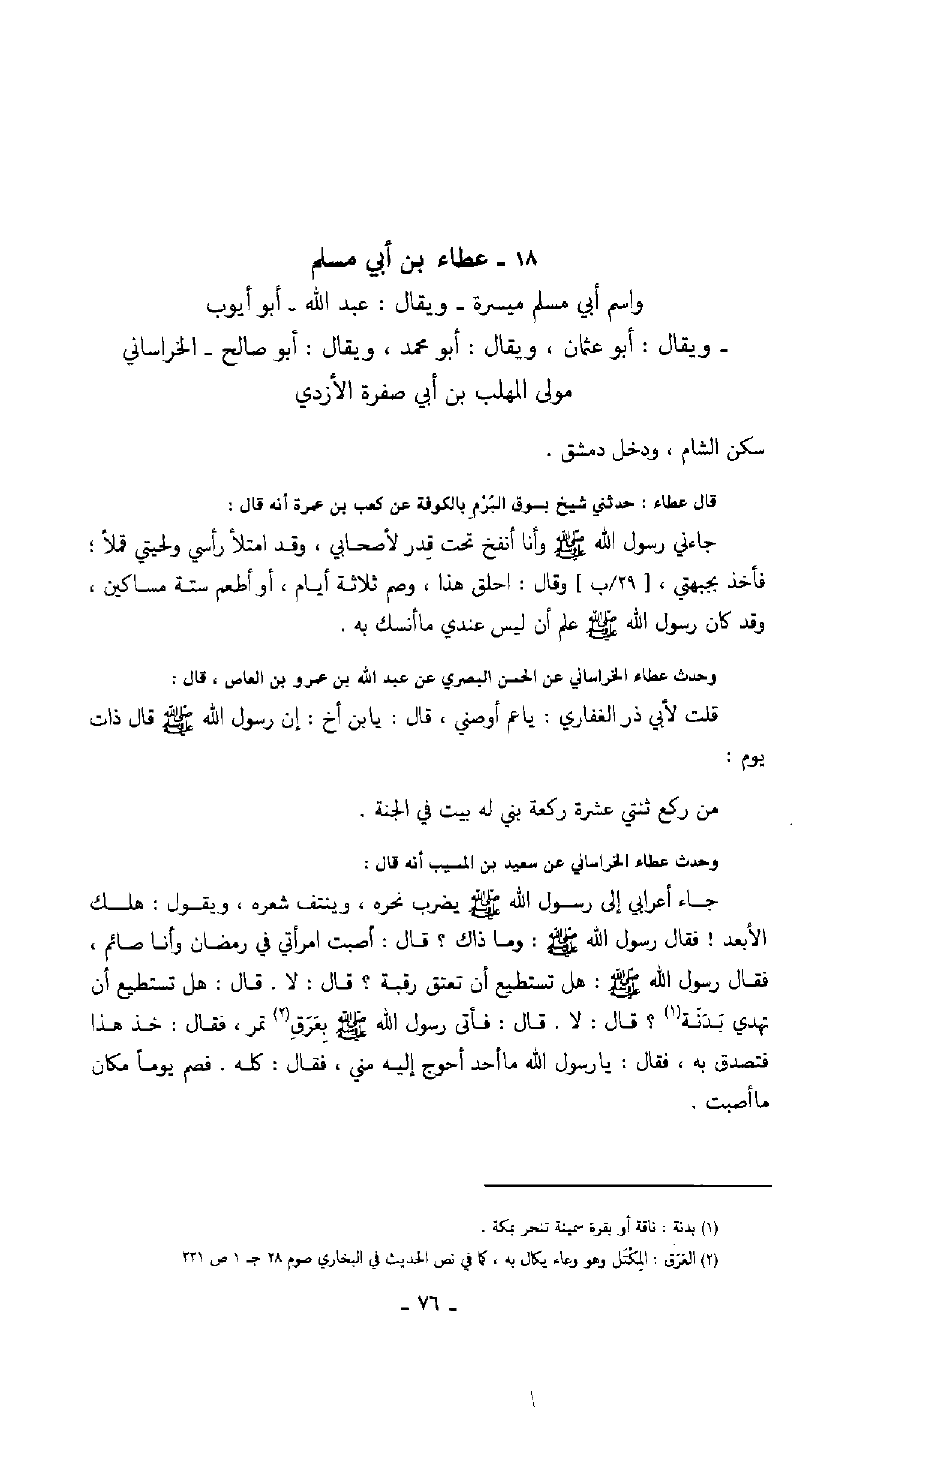 ١٨ ـ عطاء بن أبي مسلم
واسم أبي مسلم ميسرة ـ ويقال : عبد الله ـ أبو أيوب
ـ ويقال : أبو عثمان ، ويقال : أبو محمد ، ويقال : أبو صالح ـ الخراساني
مولى المهلب بن أبي صفرة الأزدي
سكن الشام ، ودخل دمشق .
قال عطاء : حدثني شيخ بسوق البُرْم بالكوفة عن كعب بن عمرة أنه قال :
جاءني رسول الله ﷺ وأنا أنفخ تحت قدر لأصحابي ، وقد امتلأ رأسي ولحيتي قملاً ؛
فأخذ بجبهتي ، [ ٢٩/ب ] وقال : احلق هذا ، وصم ثلاثة أيام ، أو أطعم ستة مساكين ،
وقد كان رسول الله ﷺ علم أن ليس عندي ماأنسك به .
وحدث عطاء الخراساني عن الحسن البصري عن عبد الله بن عمرو بن العاص ، قال :
قلت لأبي ذر الغفاري : ياعم أوصني ، قال : يابن أخ : إن رسول الله ﷺ قال ذات
يوم :
من ركع ثنتي عشرة ركعة بني له بيت في الجنة .
وحدث عطاء الخراساني عن سعيد بن المسيب أنه قال :
جاء أعرابي إلى رسول الله ﷺ يضرب نحره ، وينتف شعره ، ويقول : هلك
الأبعد ! فقال رسول الله ﷺ : وما ذاك ؟ قال : أصبت امرأتي في رمضان وأنا صائم ،
فقال رسول الله ﷺ : هل تستطيع أن تعتق رقبة ؟ قال : لا . قال : هل تستطيع أن
تهدي بَدَنَة(١) ؟ قال : لا . قال : فأتى رسول الله ﷺ بِعَرَقِ(٢) تمر ، فقال : خذ هذا
فتصدق به ، فقال : يارسول الله ماأحد أحوج إليه مني ، فقال : كله . فصم يوماً مكان
ماأصبت .
(١) بدنة : ناقة أو بقرة سمينة تنحر بمكة .
(٢) العَرَق : المِكْتَل وهو وعاء يكال به ، كما في نص الحديث في البخاري صوم ٢٨ جـ ١ ص ٢٣١
ـ ٧٦ ـ
١